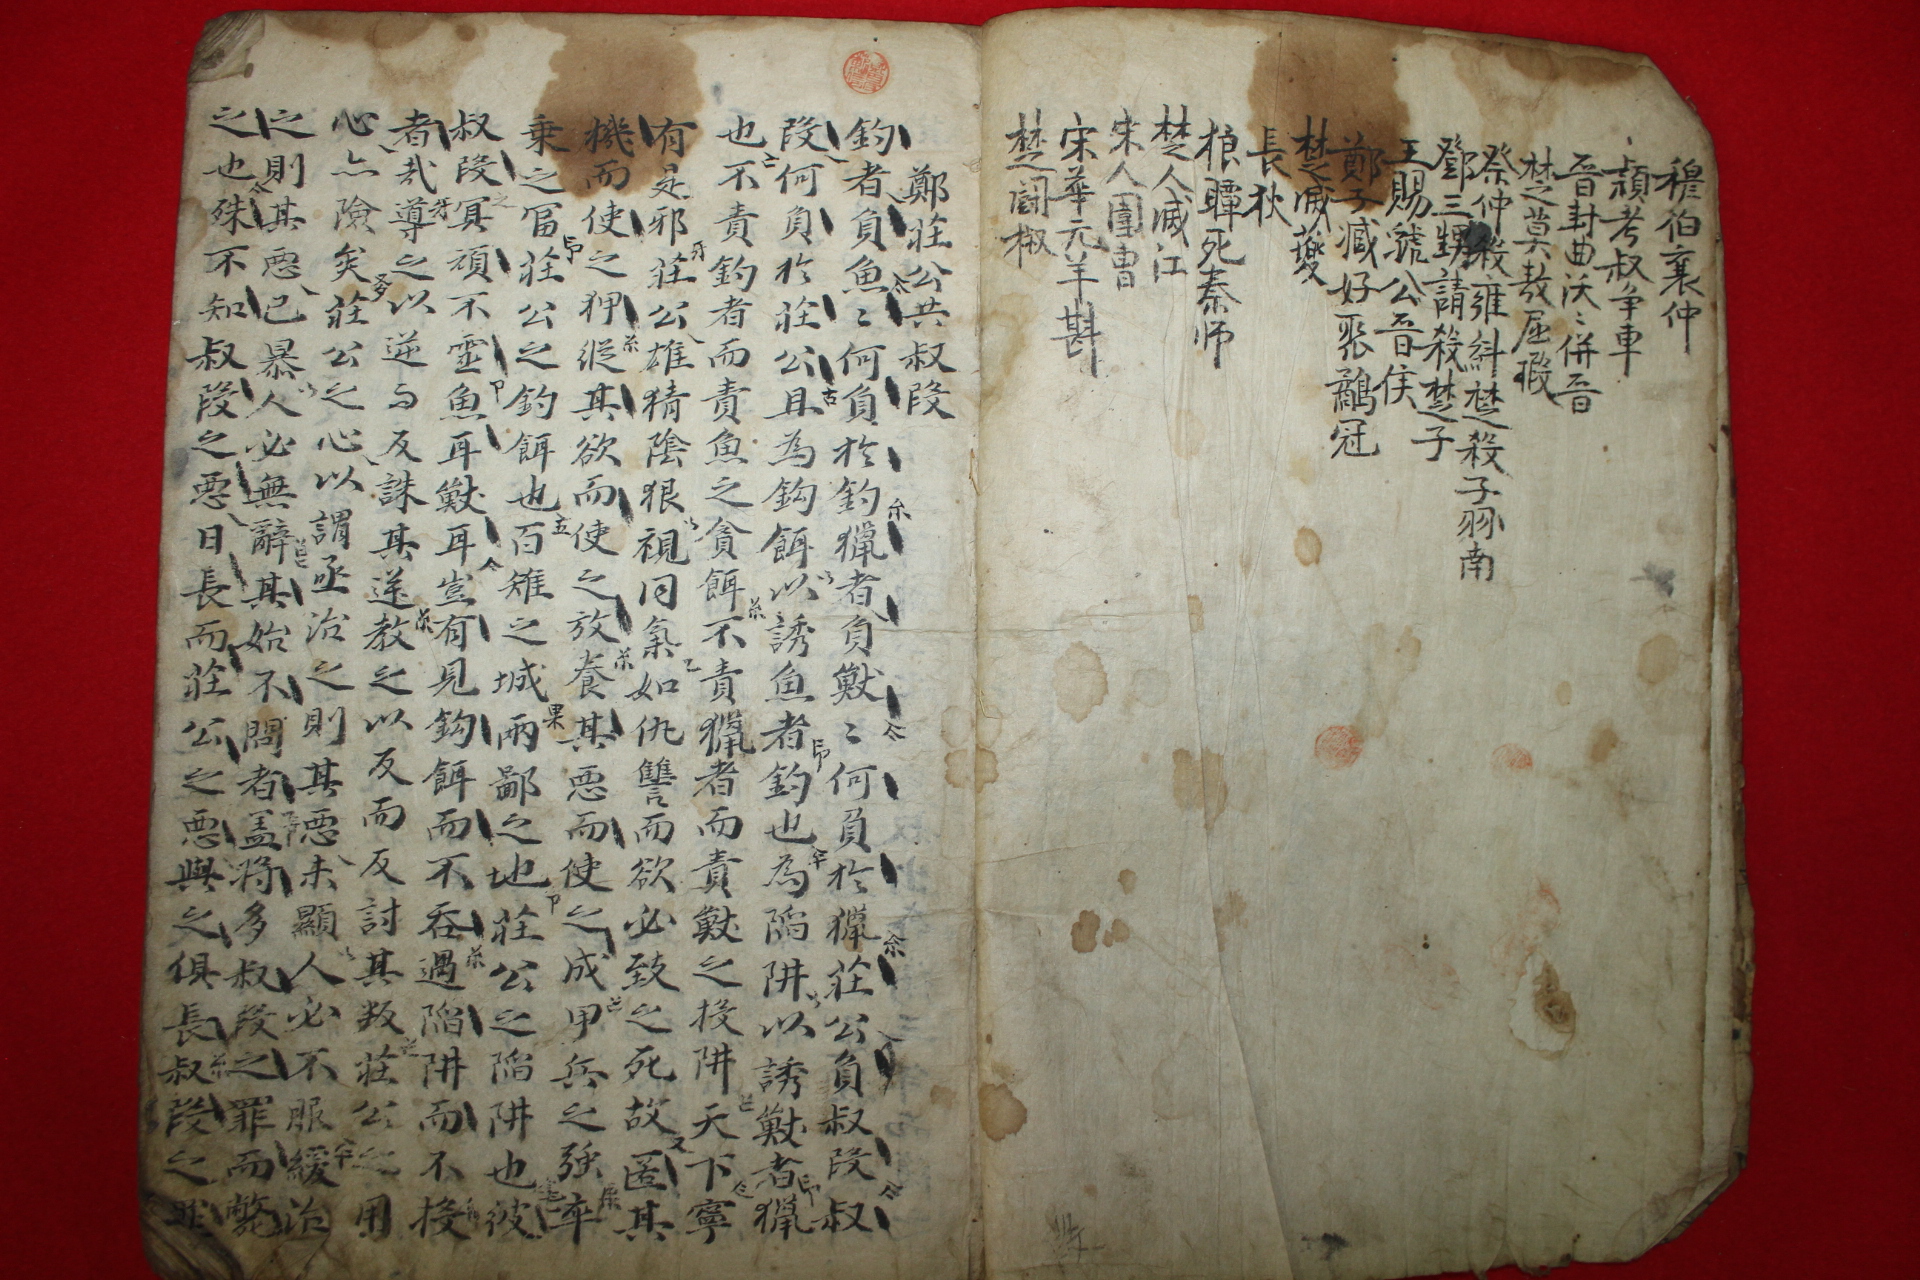 穆伯襄仲
潁考叔争車
晋封曲沃〻併晋
楚莫敖屈瑕
祭仲殺雍糾楚殺子羽南
鄧三甥請殺楚子
王賜虢公晋侯
鄭子臧好聚鷸冠
楚滅夔
長狄
狼瞫死秦师
楚人滅江
宋人圍曹
宋華元羊斟
楚鬪椒
鄭莊公共叔段
釣者負魚〻何負於釣獵者負獸〻何負於獵莊公負叔段叔
段何負於莊公且為鈎餌以誘魚者釣也為陥阱以誘獸者獵
也不責釣者而責魚之貪餌不責獵者而責獸之投阱天下寧
有是邪莊公雄猜陰狠視同氣如仇讐而欲必致之死故匿其
機而使之狎縱其欲而使之放養其悪而使之成甲兵之强卒
乗之冨莊公之釣餌也百雉之城兩鄙之地莊公之陥阱也彼
叔段冥頑不霊魚耳獸耳豈有見鈎餌而不呑過陥阱而不投
者㢤導之以逆而反誅其逆教之以反而反討其叛莊公之用
心亦險矣莊公之心以謂亟治之則其悪未顯人必不服緩治
之則其悪已暴人必無辭其始不問者盖将多叔段之罪而斃
之也殊不知叔段之悪日長而莊公之悪與之俱長叔段之罪